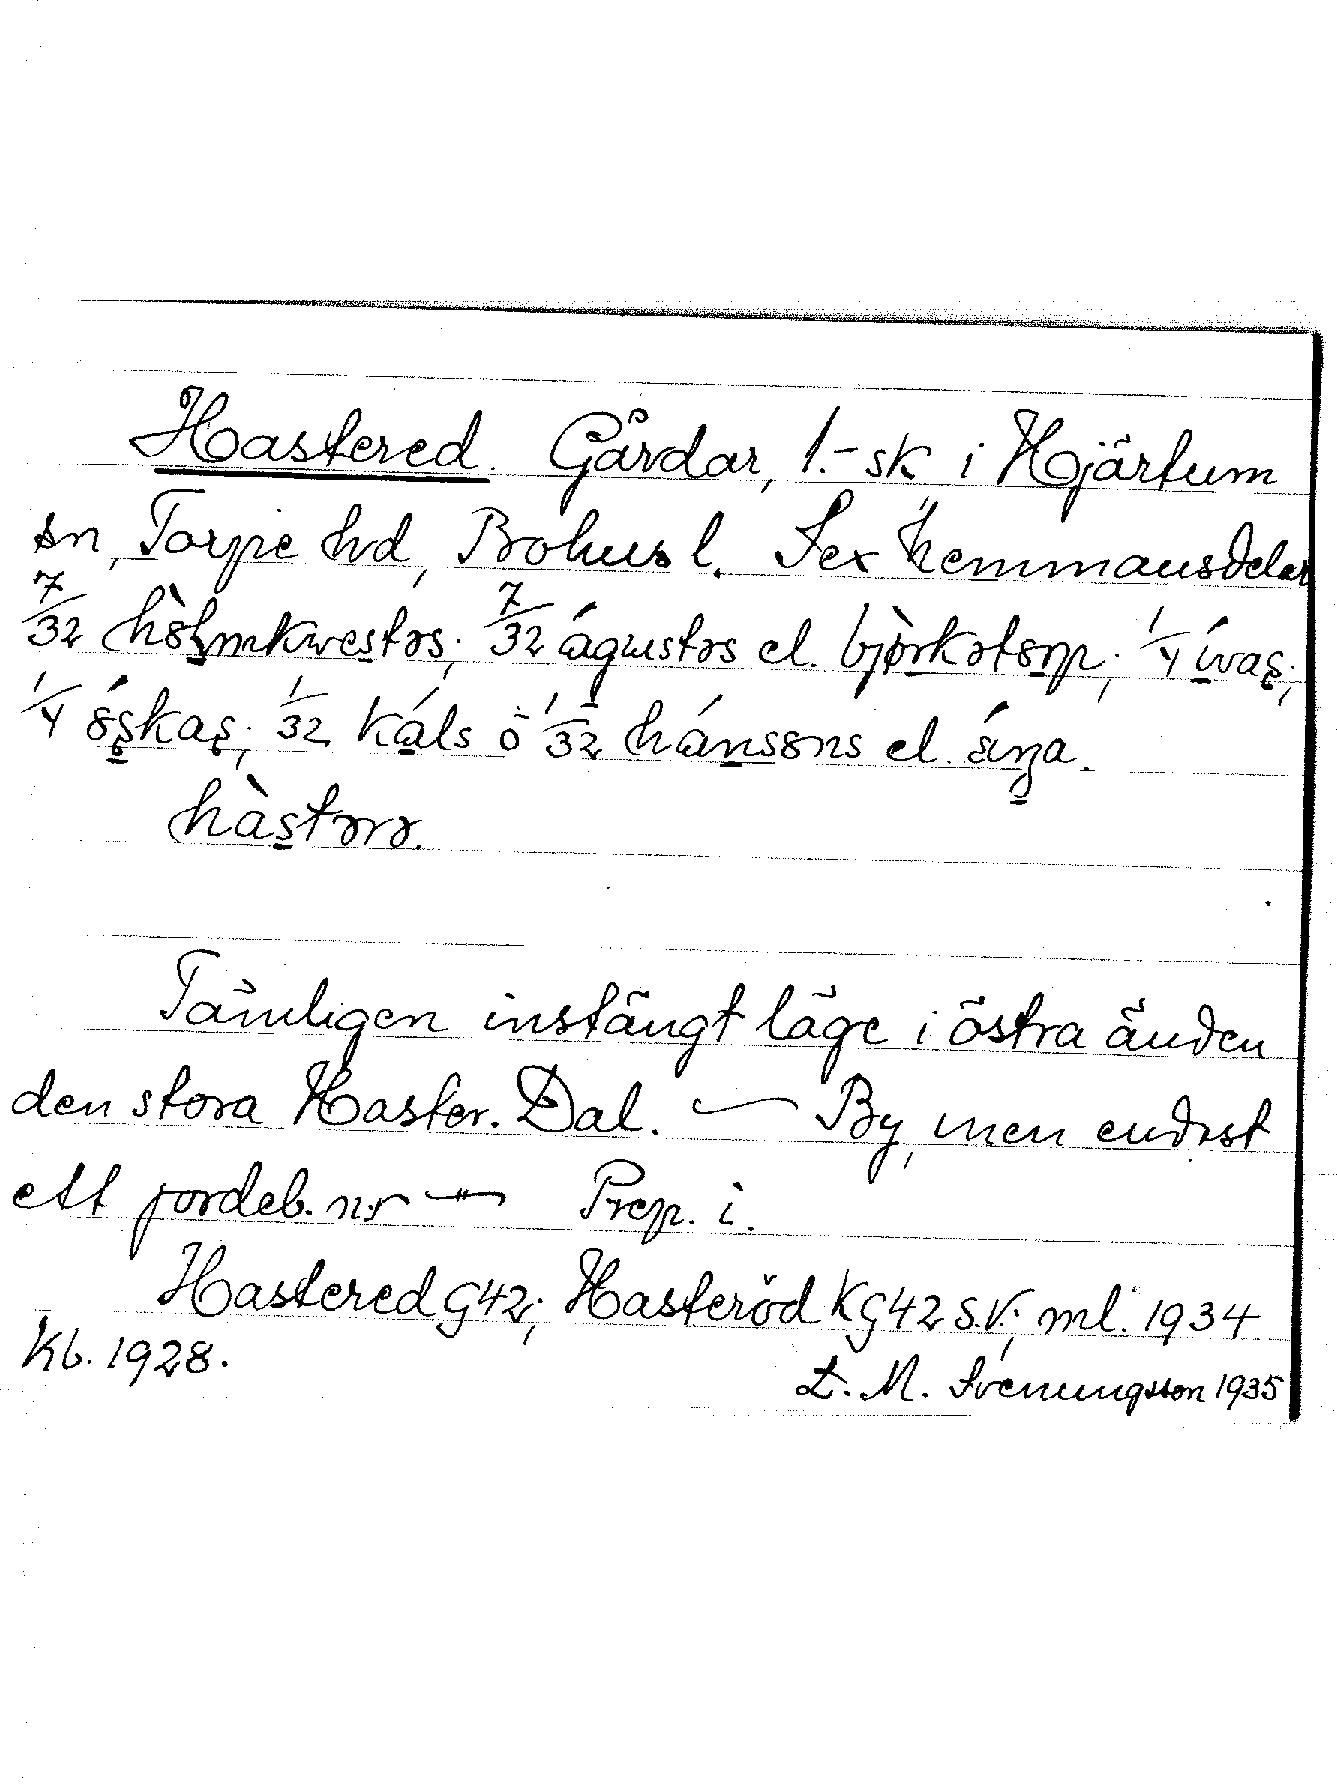 Hastered. Gårdar, 1.-sk i Hjärtum
sn, Torpe hd, Bohus l. Sex hemmansdelar
7/32 hòlmkwestəs; 7/32 águstəs el. bjòrkətorp; 1/4 ívas;
1/4 óskas; 1/32 káls ŏ 1/32 hánsons el. síŋa.
hàstərə.
Tämligen instängt läge i östra änden
den stora Haster. Dal. — By, men endast
ett jordeb. nr — Prep. i.
Hastered G42; Hasteröd KG42 S.V.; ml. 1934
Kb. 1928.
L. M. Svenungsson 1935